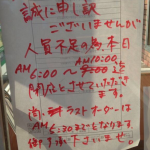 誠に申し訳
ございませんが
人員不足の為、本日
AM10:00
AM 6:00 〜 9:00 迄
閉店とさせていただき
ます。
尚、ラストオーダーは
AM 6:30までとなります
御了承下さいませ。